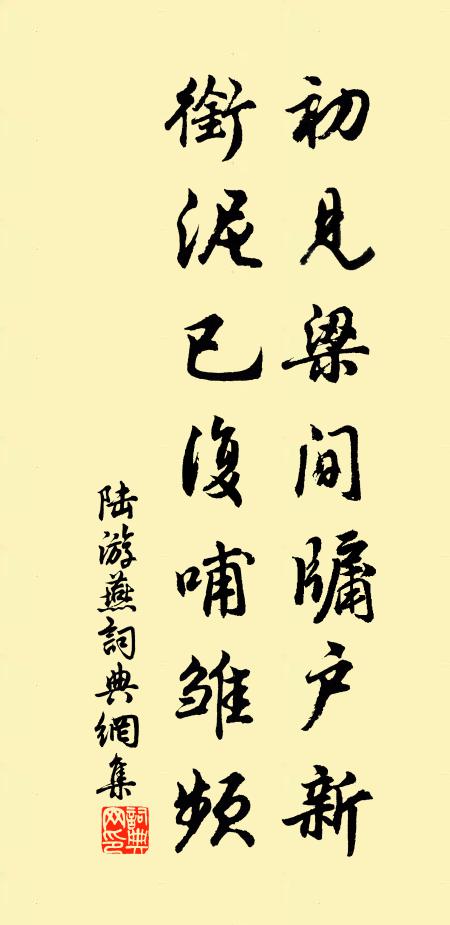 初見梁間牖户新
銜泥已復哺雏頻
陆游燕詞典網集
詞典网印